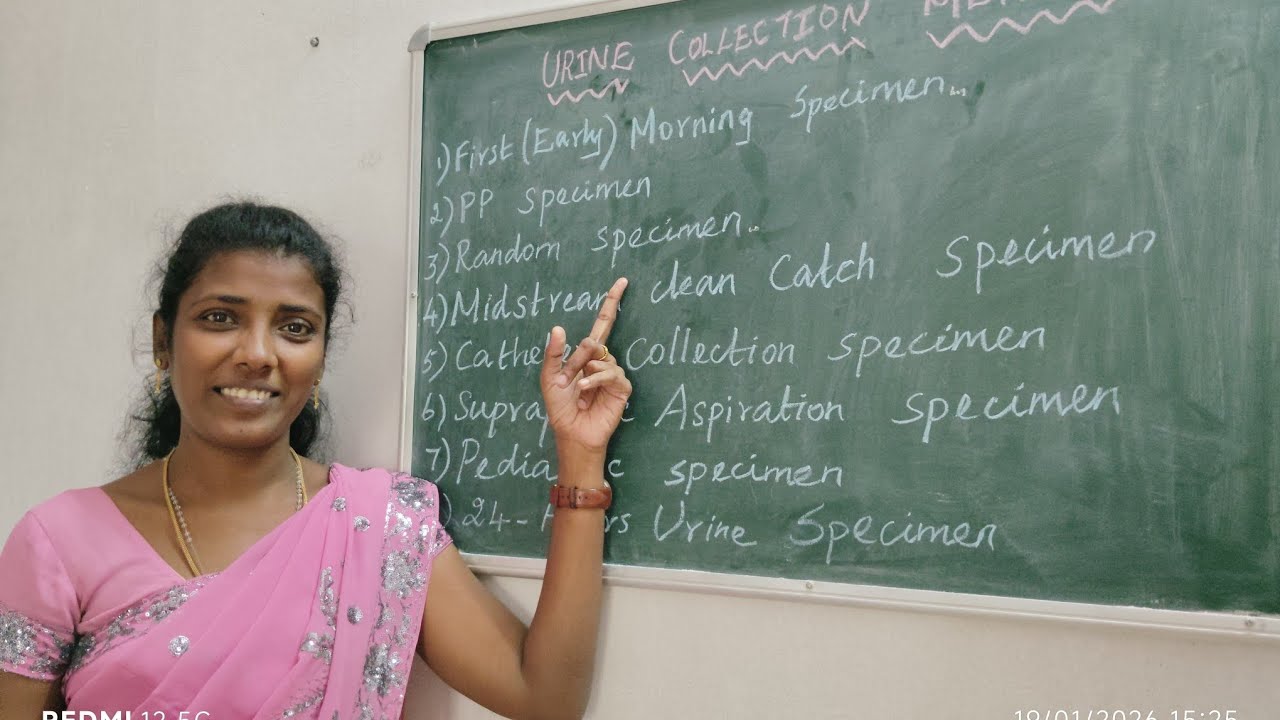 URINE COLLECTION
1) First (Early) Morning Specimen...
2) PP specimen
3) Random specimen..
4) Midstream clean Catch Specimen
5) Collection specimen
6) Aspiration specimen
7) specimen
24 - Urine Specimen
REDMI 12 5G
19/01/2026 15:25